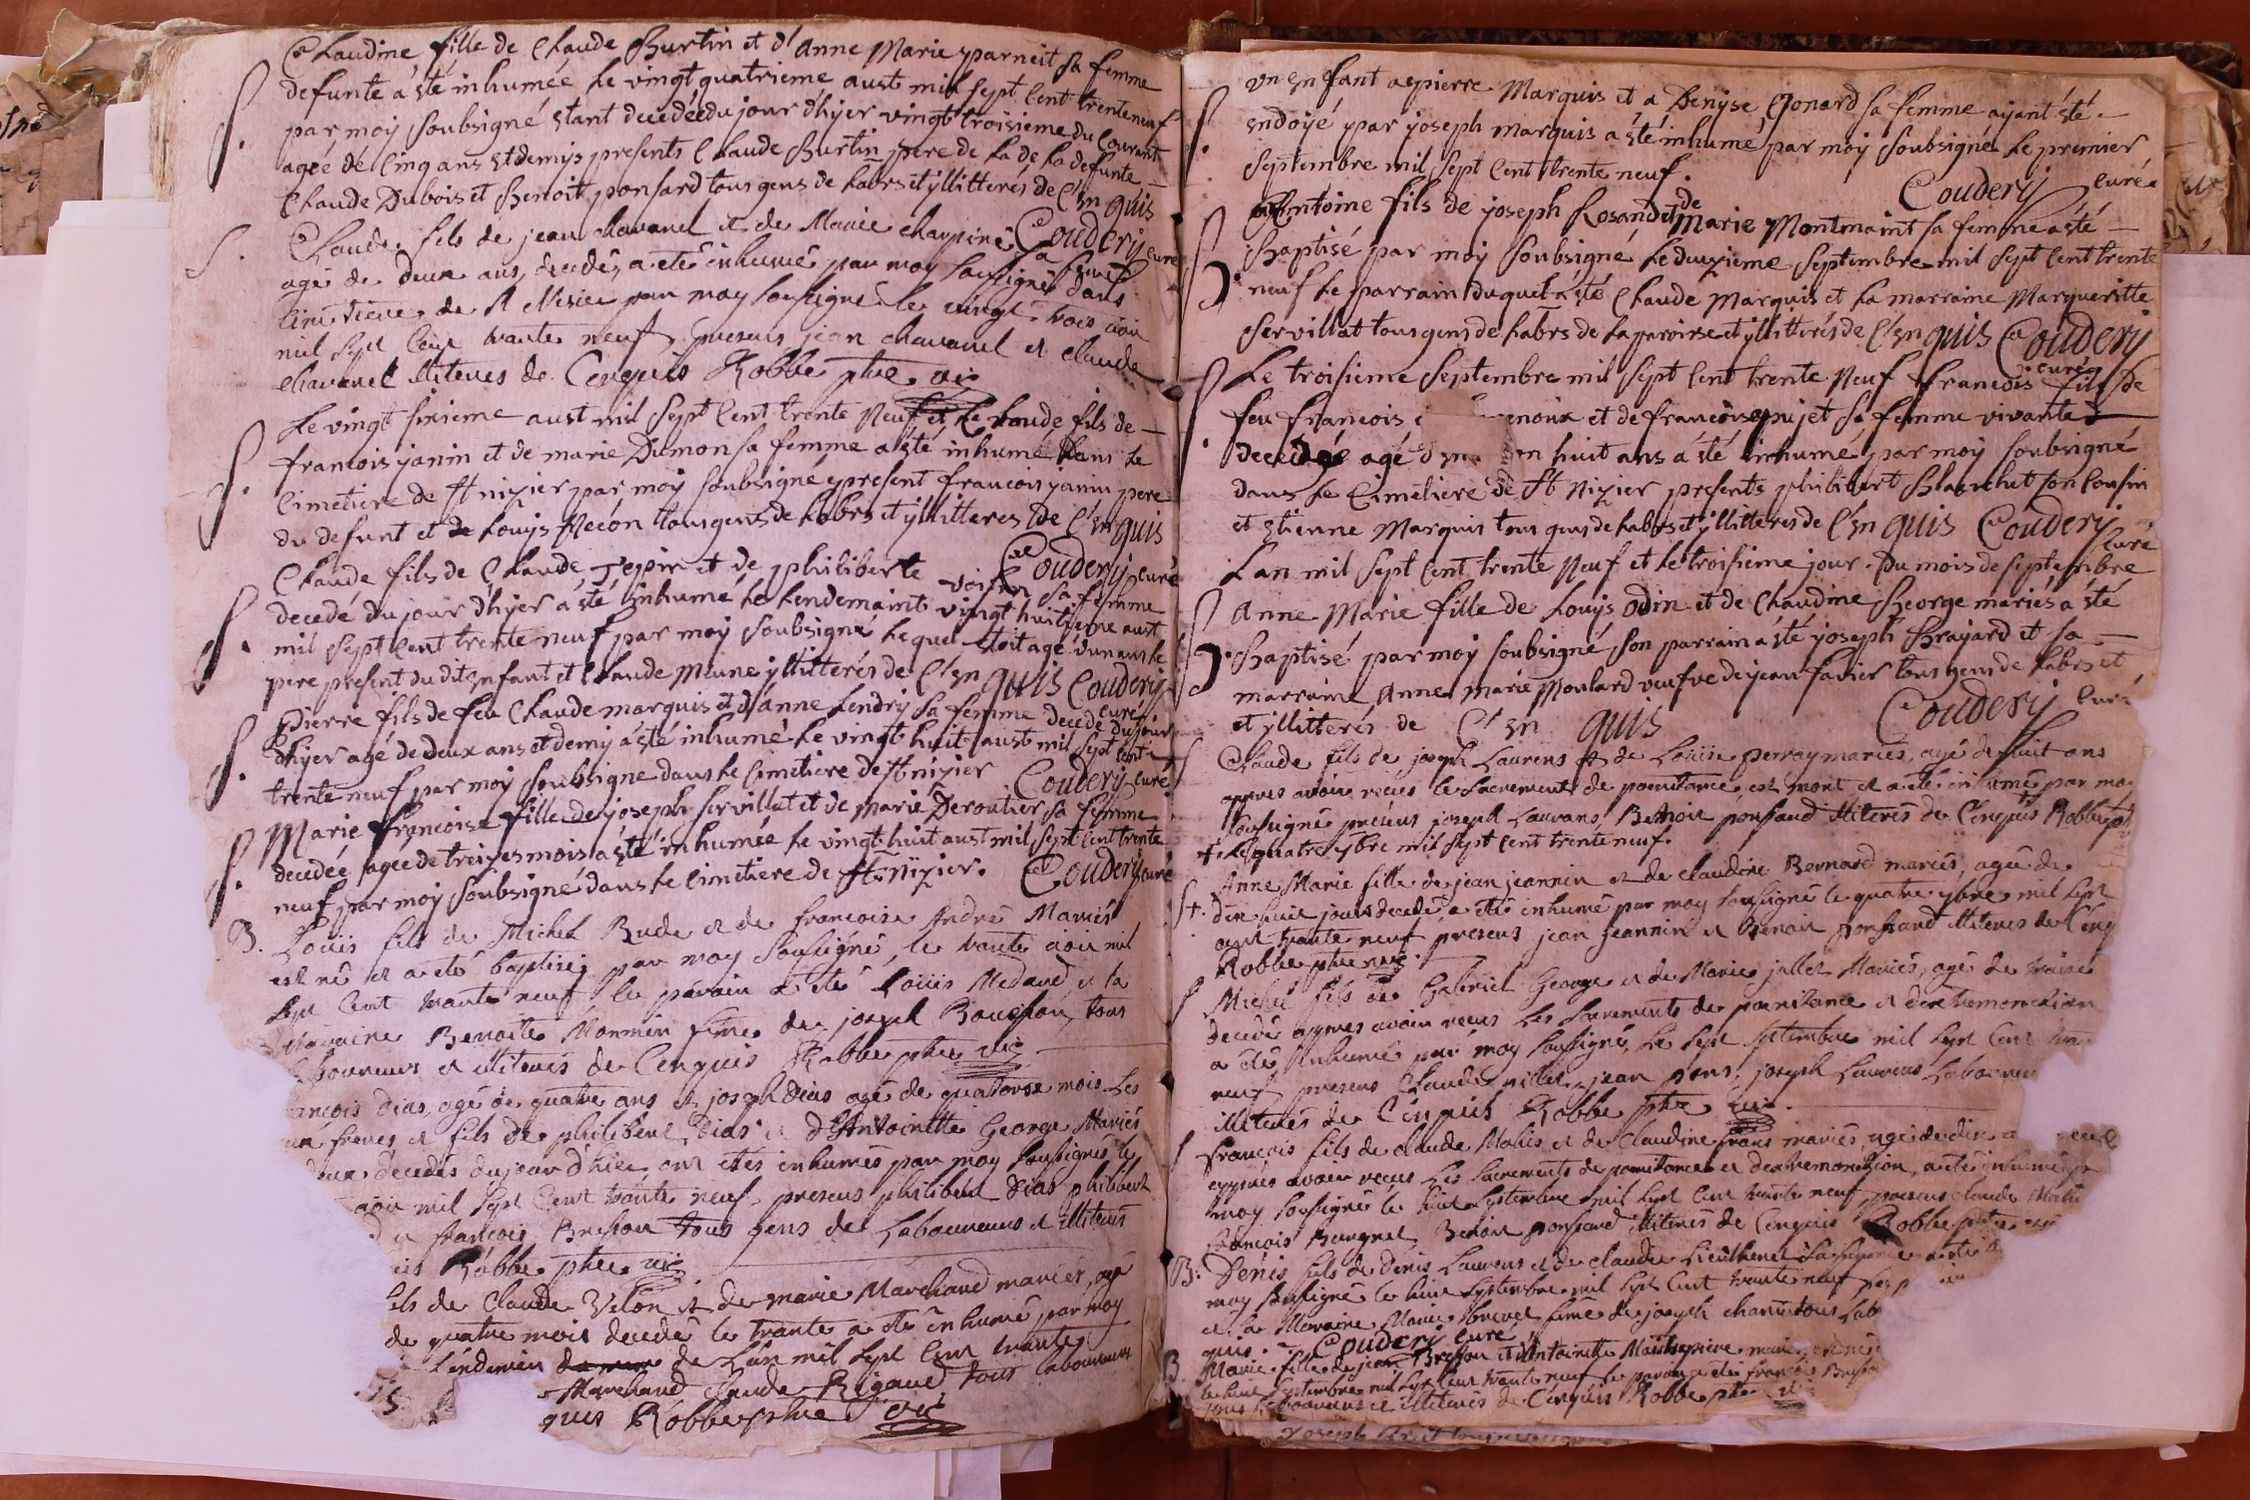 Claudine fille de Claude Burtin et d'Anne Marie parneit sa femme
defunte a sté inhumée le vingt quatrieme aust mil sept Cent trente neuf
par moy soubsigné stant decedée du jour d'hyer vingt troisieme du Courant
ageé de Cinq ans et demys presents Claude Burtin pere de la de la defunte
Claude Dubois et Benoit ponsard tous gens de labrs et yllitterés de C'en quis
Coudery curé
Claude fils de jean chavanel et de Marie
agé de deux ans, decedé, a eté inhumé par moy sousigné dans
Cimetiere de St Nisier par moy sousigné le vingt trois aoû
mil sept Cent trante neuf presens jean chavanel et Claude
chavanel illiteres de Cenquis Robbe ptre vic
Le vingt sixieme aust mil sept Cent trente Neuf Claude fils de
francois yanin et de marie Dumon sa femme a sté inhumé dans le
Cimetiere de St nizier par moy soubsigné present francois yanin pere
du defunt et de Louys tous gens de labrs et yllitteres de C'en quis
Coudery curé
Claude fils de Claude et de philiberte voisin sa femme
decedé du jour d'hyer a sté inhumé le lendemaint vingt huitieme aust
mil sept Cent trente neuf par moy soubsigné lequel stoit agé d'un ans le
pere present du dit enfant et Claude Meune yllitterés de C'en quis Coudery
curé
Pierre fils de feu Claude marquis et d'anne Lendry sa femme decedé du jour
d'hyer agé de deux ans et demy a sté inhumé le vingt huit aust mil sept Cent
trente neuf par moy soubsigné dans le Cimetiere de St nizier Coudery curé
Marie francoise fille de joseph servillat et de marie Deroutier sa femme
decedée ageé de treizes mois a sté inhumée le vingt huit aust mil sept Cent trente
neuf par moy soubsigné dans le Cimetiere de St nizier. Coudery curé
B. Loüis fils de Michel Bude et de francoise André Mariés
est né et a eté baptisé par moy sousigné, le trante aoû mil
sept Cent trante neuf le parain a eté Loüis Medard et la
Maraine Benoite Monmin fme de joseph tous
Laboureurs et illiterés de Cenquis Robbe ptre vic
dias, agé de quatre ans et joseph dias agé de quatorse mois les
freres et fils de philibert dias et d'Antoinette George Mariés
decedés du jour d'hier ont etés inhumés par moy sousigné le
aoû mil sept Cent trante neuf presens philibert dias philibert
et francois Bresson tous gens de Laboureurs et illiterés
Robbe ptre vic
de Claude Velon et de marie Marchand mariés, agé
de quatre mois decedé le trante a eté inhumé par moy
Lendemain de L'an mil sept Cent trante
Marchand Claude Rigaud tous laboureurs
quis Robbe ptre vic
un enfant a pierre Marquis et a Denyse Gonard sa femme ayant sté
endoyé par joseph marquis a sté inhumé par moy soubsigné le premier
septembre mil sept Cent trente neuf.
Coudery curé
Antoine fils de joseph Rosand et de Marie Montmaint sa femme a sté
Baptisé par moy soubsigné le deuxieme septembre mil sept Cent trente
neuf le parrain duquel a sté Claude Marquis et la marraine Margueritte
servillat tous gens de labrs de la paroisse et yllitterés de C'en quis Coudery
curé
Le troisieme septembre mil sept Cent trente Neuf francois fils de
feu francois et de francoise pujet sa femme vivante
decedé agé huit ans a sté inhumé par moy soubsigné
dans le Cimetiere de St Nizier presents philibert Blanchet son Cousin
et Etienne Marquis tous gens de labrs et yllitteres de C'en quis Coudery
curé
L'an mil sept Cent trente Neuf et le troisieme jour du mois de septembre
Anne Marie fille de Louys odin et de Claudine George mariés a sté
Baptisé par moy soubsigné, son parrain a sté joseph Brayard et sa
marraine Anne marie Moulard veufve de jean favier tous gens de labrs et
et yllitterés de C'en quis Coudery curé
Claude fils de joseph Laurens et de Loüise perray mariés, agé de huit ans
appres avoir recus le sacrement de penitance, est mort et a eté inhumé par moy
sousigné presens joseph Laurans Benoit ponsard illiterés de Cenquis Robbe ptre
+ le quatre 7bre mil sept Cent trente neuf.
Anne Marie fille de jean jeannin et de claudine Bernard mariés, agée de
dix huit jours decedé a eté inhumé par moy sousigné le quatre 7bre mil sept
cent trante neuf presens jean jeannin et Benoit ponsard illiteres de Cenq
Robbe ptre vic.
Michel fils de Gabriel George et de Marie jallet Mariés, agé de traize
decedé appres avoir recus les sacrements de penitance et d'extremonction
a eté inhumé par moy sousigné, le sept septembre mil sept Cent tran
neuf presens Claude millet, jean pons, joseph Laurens Laboureu
illiterés de Cenquis Robbe ptre vic.
francois fils de claude Matis et de Claudine frans mariés, agé de dix
appres avoir recus les sacrements de penitance et d'extremonction, a eté inhumé p
moy sousigné le huit septembre mil sept Cent trante neuf, presens claude Mati
francois Burgnet, Benoit ponsard illiterés de Cenquis Robbe ptre
B. Denis fils de Denis Laurens et de claude Lieuthenet sa femme a eté
moy sousigné le huit septembre mil sept Cent trante neuf Les p
et la Maraine Marie fme de joseph tous Lab
quis. Coudery curé
B. Marie fille de jean Bresson et d'Antoinette mariés est né
le huit septembre mil sept Cent trante neuf le parain a eté francois Bresso
tous Laboureurs et illiterés de Cenquis Robbe ptre vic